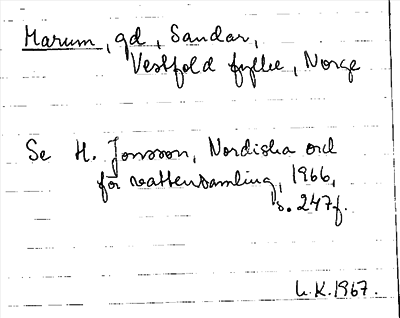 Marum, gd, Sandar,
Vestfold fylke, Norge
Se H. Jonsson, Nordiska ord
för vattensamling, 1966,
s. 247f.
L.K. 1967.